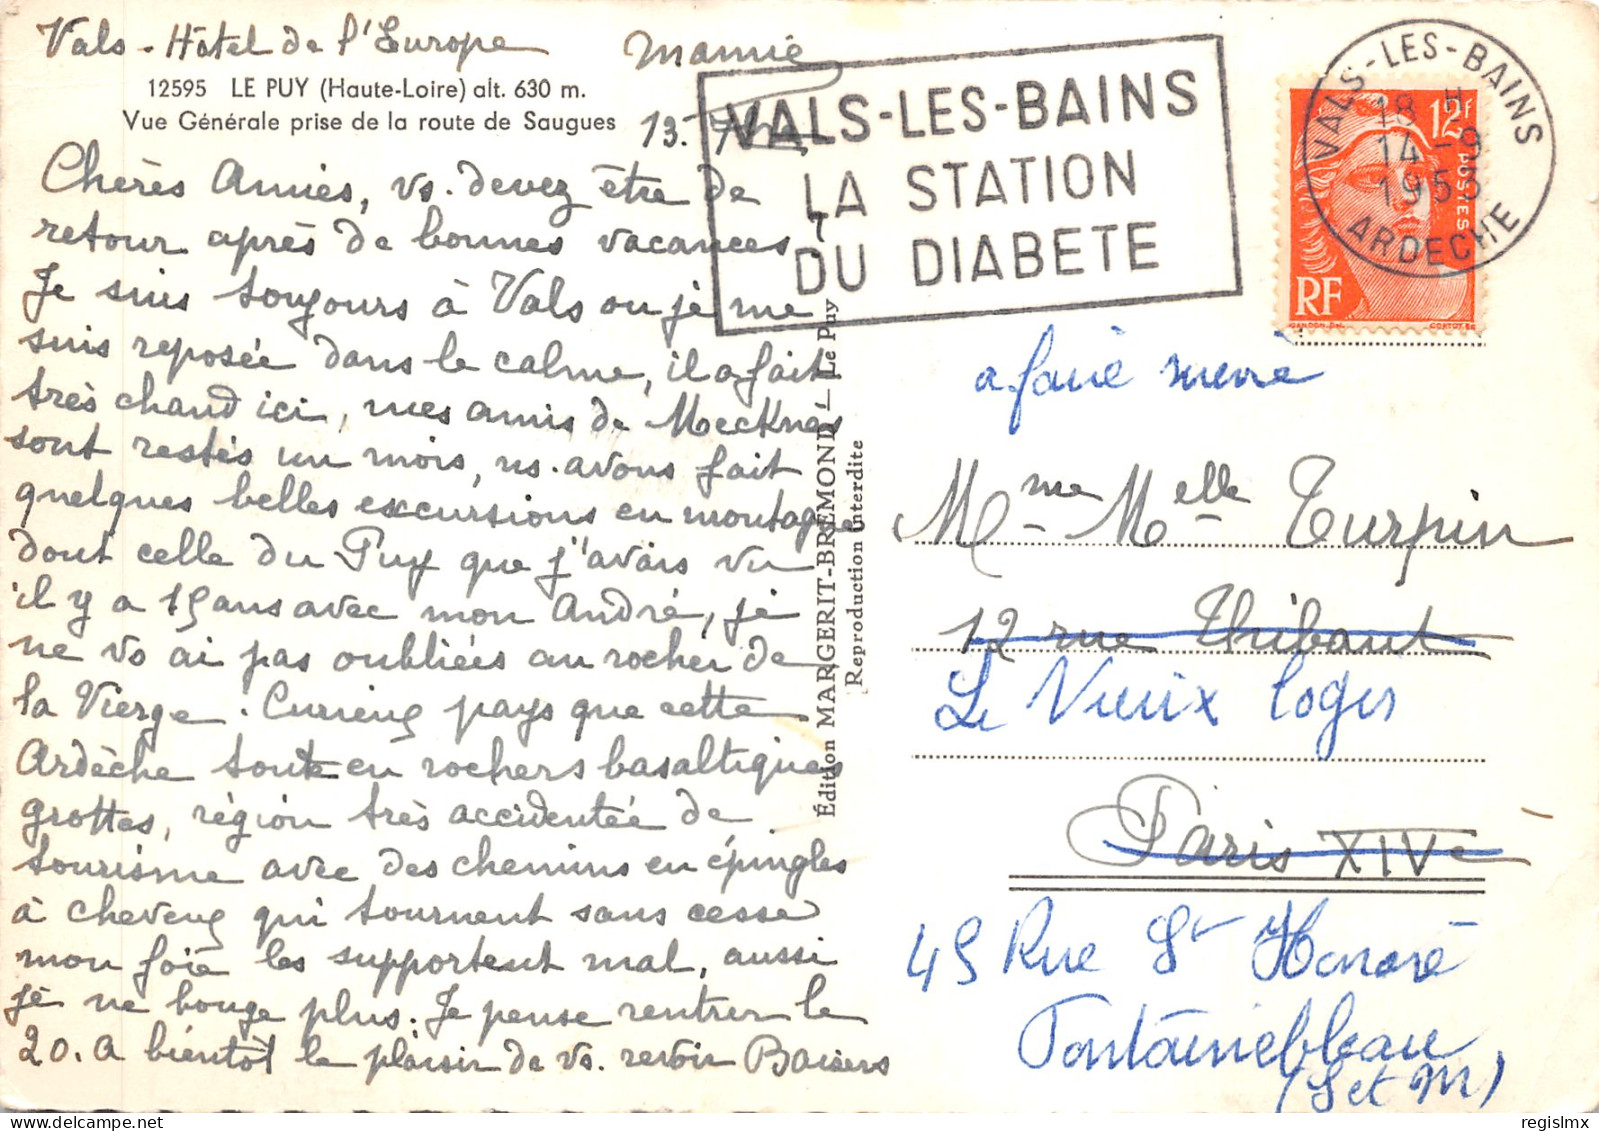 Vals - Hôtel de l'Europe
12595 LE PUY (Haute-Loire) alt. 630 m.
Vue Générale prise de la route de Saugues
Mamie
13.
Chères Amies, vs. devez être de
retour après de bonnes vacances,
Je suis toujours à Vals ou je me
suis reposée dans le calme, il a fait
très chaud ici, mes amis de Mecknès
sont restés un mois, ns. avons fait
quelques belles excursions en montagne
dont celle du Puy que j'avais vu
il y a 15 ans avec mon André, je
ne vs ai pas oubliées au rocher de
la Vierge. Curieux pays que cette
Ardèche toute en rochers basaltiques
grottes, région très accidentée de
tourisme avec des chemins en épingles
à cheveux qui tournent sans cesse
mon foie les supportent mal, aussi
je ne bouge plus. Je pense rentrer le
20. A bientôt le plaisir de vs. revoir Baisers
Édition MARGERIT-BREMOND — Le Puy
Reproduction interdite
VALS-LES-BAINS
LA STATION
DU DIABETE
VALS-LES-BAINS
18 H
14 - 9
1953
ARDECHE
12f
POSTES
RF
GANDON.DEL.
CORTOT.SC
a faire suivre
Mme Melle Turpin
12 rue Thibaut
Le Vieux Logis
Paris XIVe
45 Rue St Honoré
Fontainebleau
(S et M)
regislmx